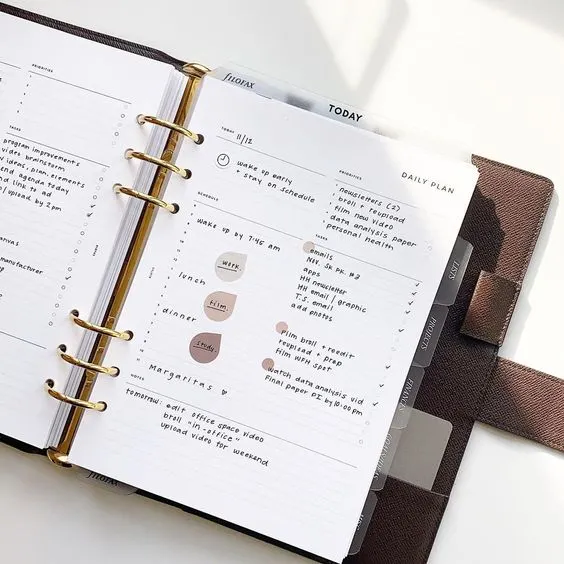 PRIORITIES
TASKS
program improvements
video brainstorm
ideas, plan, elements
send agenda today
link to ad
upload by 2pm
canvas
manufacturer
FILOFAX
TODAY
DAILY PLAN
TODAY
11/12
wake up early
+ stay on schedule
PRIORITIES
newsletters (2)
broll + reupload
film new video
data analysis paper
personal health
SCHEDULE
wake up by 7:45 am
work.
lunch
film.
dinner
study.
margaritas
TASKS
emails
Nov. SK PK. #2
apps
HH newsletter
HH email / graphic
T.S. email
add photos
film broll + reedit
reupload + prep
film WFH spot
watch data analysis vid
Final paper PI by 10:00pm
NOTES
tomorrow: edit office space video
broll "in-office"
upload video for weekend
LISTS
PROJECTS
FINANCES
FILOFAX